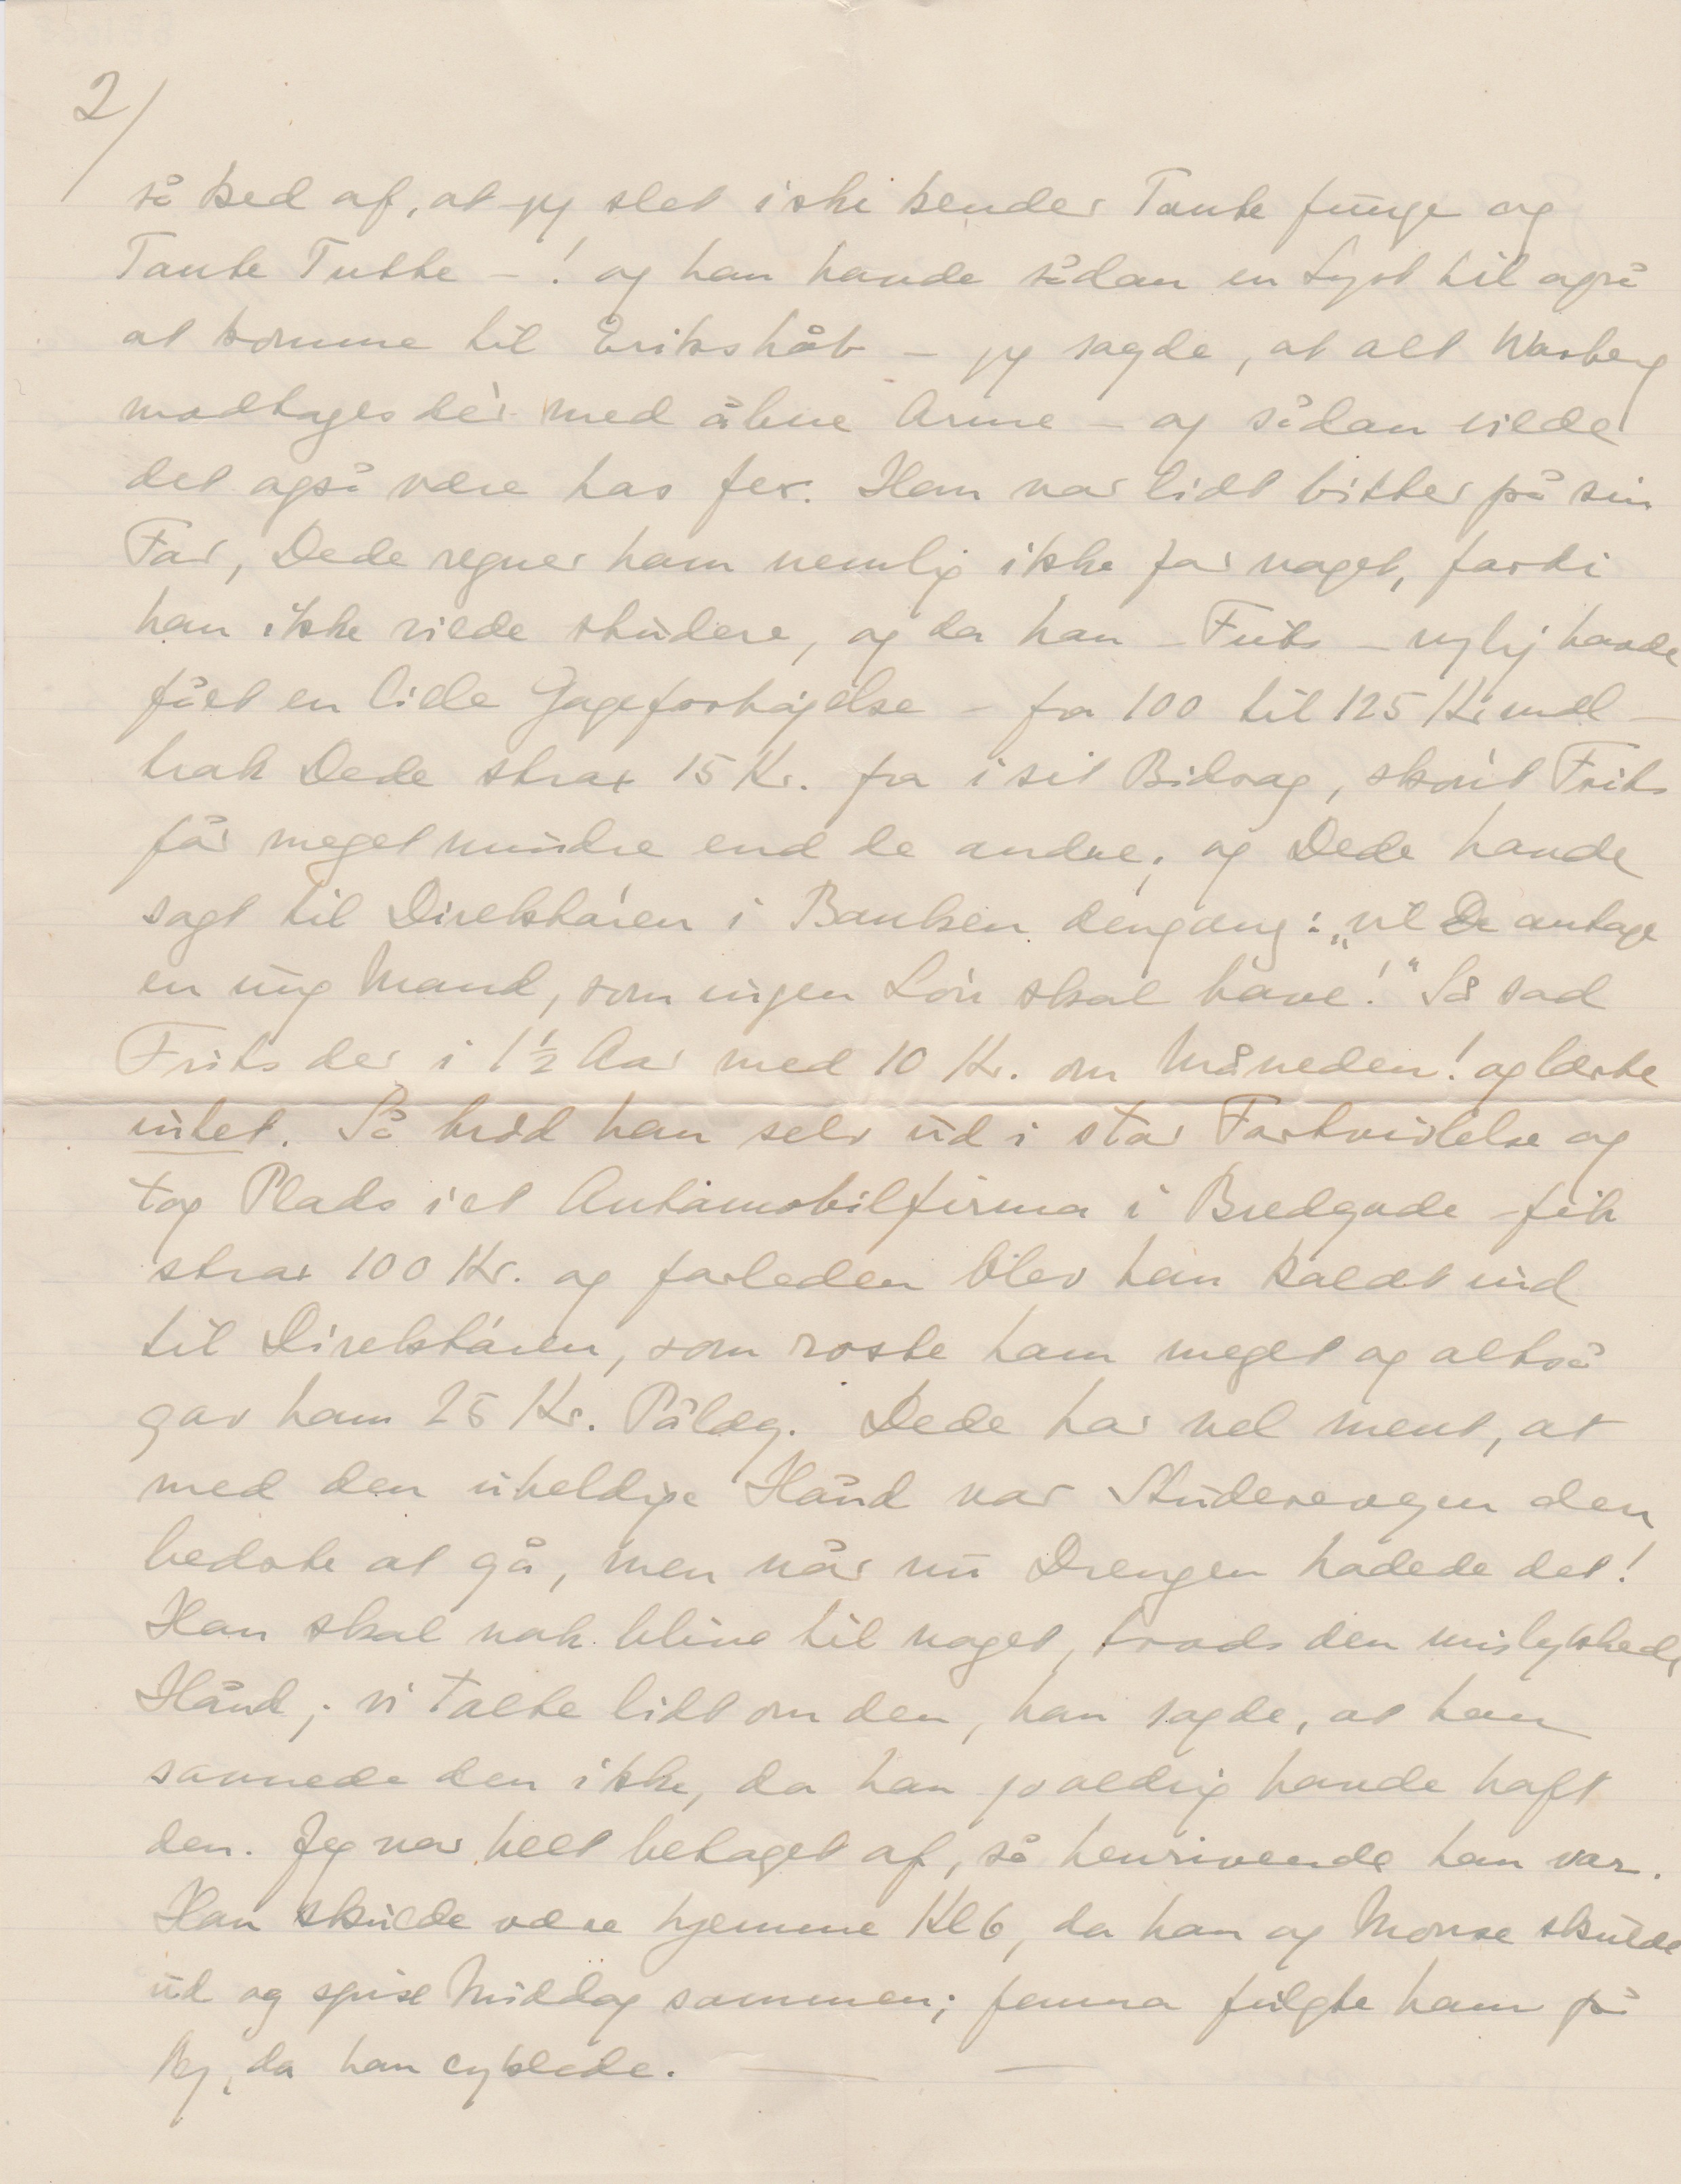 2/
så ked af, at jeg slet ikke kender Tante Junge og
Tante Tutte - ! og han havde sådan en Lyst til også
at komme til Erikshåb - jeg sagde, at alt Warberg
modtages dér med åbne Arme - og sådan vilde
det også være hos Jer. Han var lidt bitter på sin
Far, Dede regner ham nemlig ikke for noget, fordi
han ikke vilde studere, og da han - Frits - nylig havde
fået en lille Gageforhøjelse - fra 100 til 125 Kr mdl -
trak Dede strax 15 Kr. fra i sit Bidrag, skønt Frits
får meget mindre end de andre; og Dede havde
sagt til Direktøren i Banken dengang: „vil De antage
en ung Mand, som ingen Løn skal have!" Så sad
Frits der i 1½ Aar med 10 Kr. om Måneden! og lærte
intet. Så brød han selv ud i stor Fortvivlelse og
tog Plads i et Automobilfirma i Bredgade - fik
strax 100 Kr. og forleden blev han kaldt ind
til Direktøren, som roste ham meget og altså
gav ham 25 Kr. Pålæg. Dede har vel ment, at
med den uheldige Hånd var Studerevejen den
bedste at gå, men når nu Drengen hadede det!
Han skal nok blive til noget, trods den mislykkede
Hånd; vi talte lidt om den, han sagde, at han
savnede den ikke, da han jo aldrig havde haft
den. Jeg var helt betaget af, så henrivende han var.
Han skulde være hjemme Kl 6, da han og Monse skulde
ud og spise Middag sammen; Jemma fulgte ham på
Vej, da han cyklede. — —